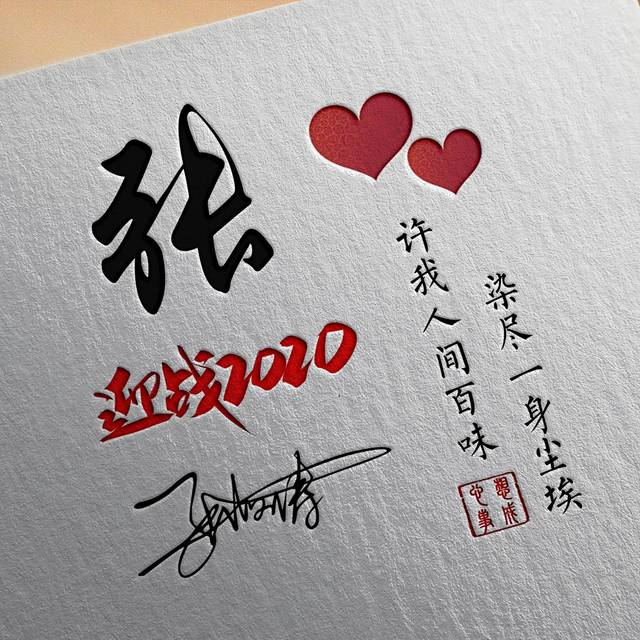 张
迎战2020
染尽一身尘埃
许我人间百味
心想
事成